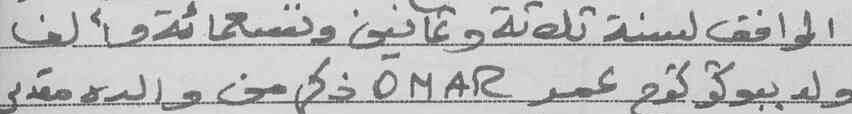 الموافق لسنة ثلاثة وثمانين وتسعمائة وألف
ولد ببوكوكوم عمر OMAR ذكر من والده مقدم